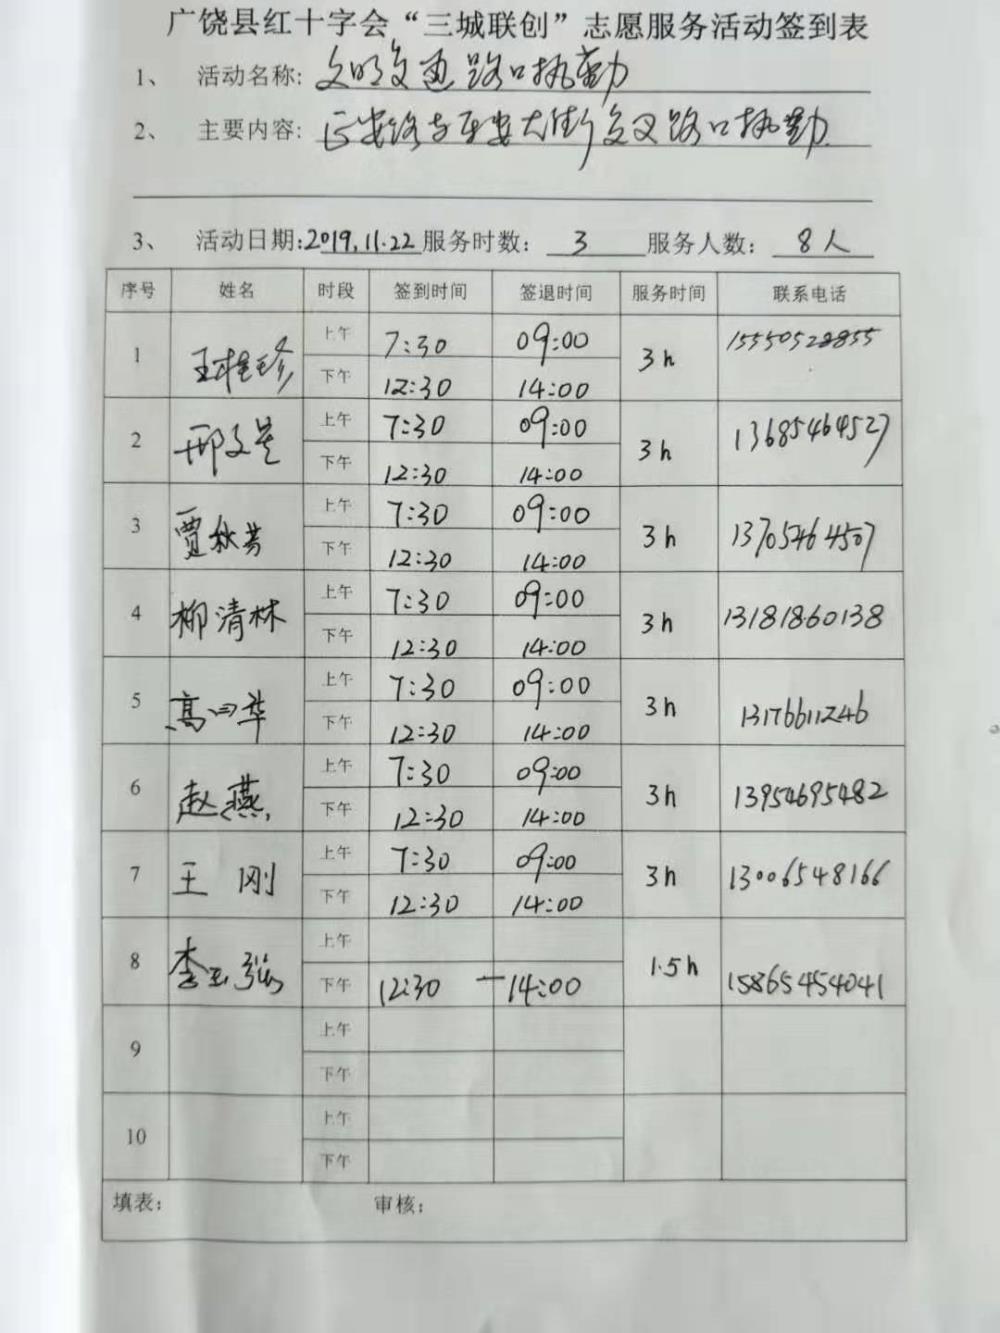 广饶县红十字会“三城联创”志愿服务活动签到表
1、 活动名称: 文明交通路口执勤
2、 主要内容: 正安路与平安大街交叉路口执勤
3、 活动日期:2019.11.22 服务时数: 3 服务人数: 8人
序号 姓名 时段 签到时间 签退时间 服务时间 联系电话
1 王桂珍 上午 7:30 09:00 3h 15550522855
下午 12:30 14:00
2 邢文星 上午 7:30 09:00 3h 13685464527
下午 12:30 14:00
3 贾秋芳 上午 7:30 09:00 3h 13705464507
下午 12:30 14:00
4 柳清林 上午 7:30 09:00 3h 13181860138
下午 12:30 14:00
5 高 华 上午 7:30 09:00 3h 13176611246
下午 12:30 14:00
6 赵燕 上午 7:30 09:00 3h 13954695482
下午 12:30 14:00
7 王 刚 上午 7:30 09:00 3h 13006548166
下午 12:30 14:00
8 李玉强 上午 1.5h 15865454041
下午 12:30 — 14:00
9 上午
下午
10 上午
下午
填表: 审核: